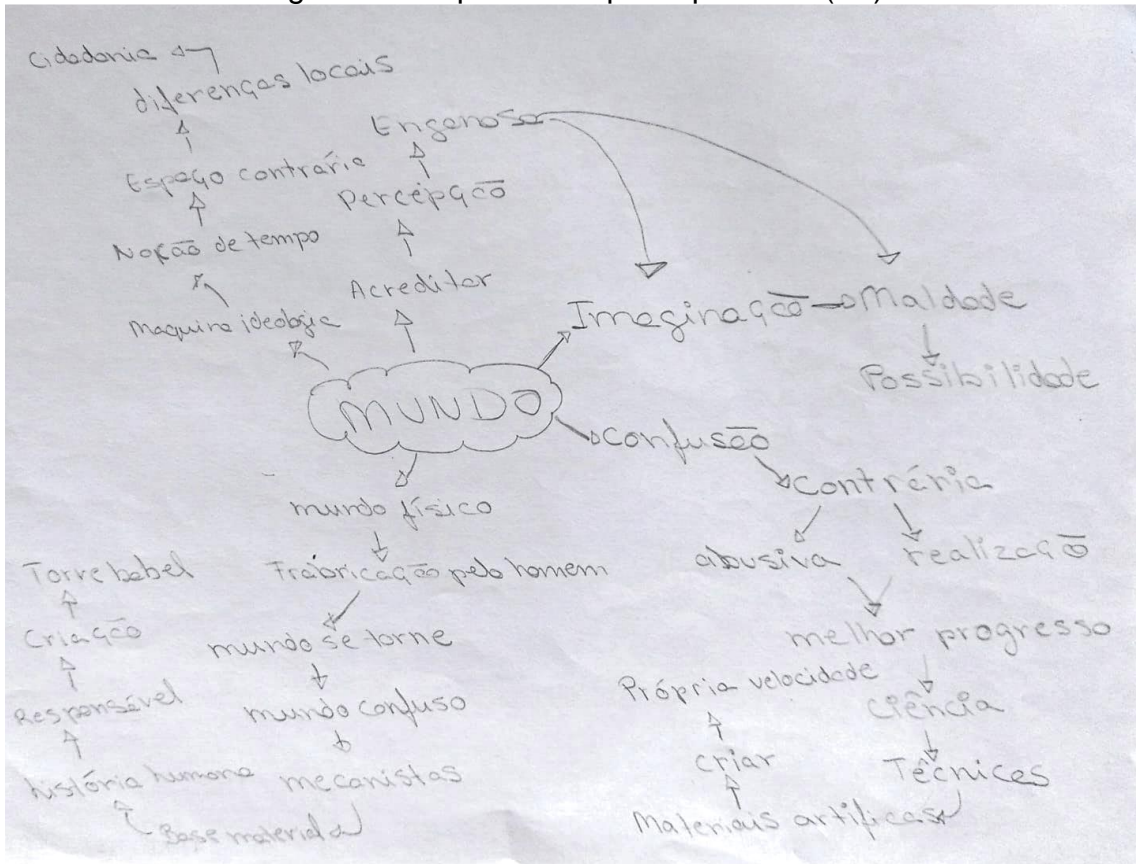 Cidadania
diferenças locais
Espaço contrária
Noção de tempo
Maquina ideologica
Enganosa
Percepção
Acreditar
MUNDO
Imaginação
Maldade
Possibilidade
confusão
contrária
abusiva
realização
melhor progresso
ciência
Técnicas
Materiais artificas
criar
Própria velocidade
mundo físico
Frabricação pelo homem
mundo se torne
mundo confuso
mecanistas
Base material
história humana
Responsável
Criação
Torre babel